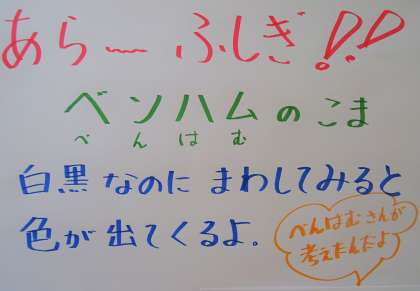 あら〜ふしぎ!!
ベンハムのこま
べんはむ
白黒なのにまわしてみると
色が出てくるよ。
べんはむさんが
考えたんだよ